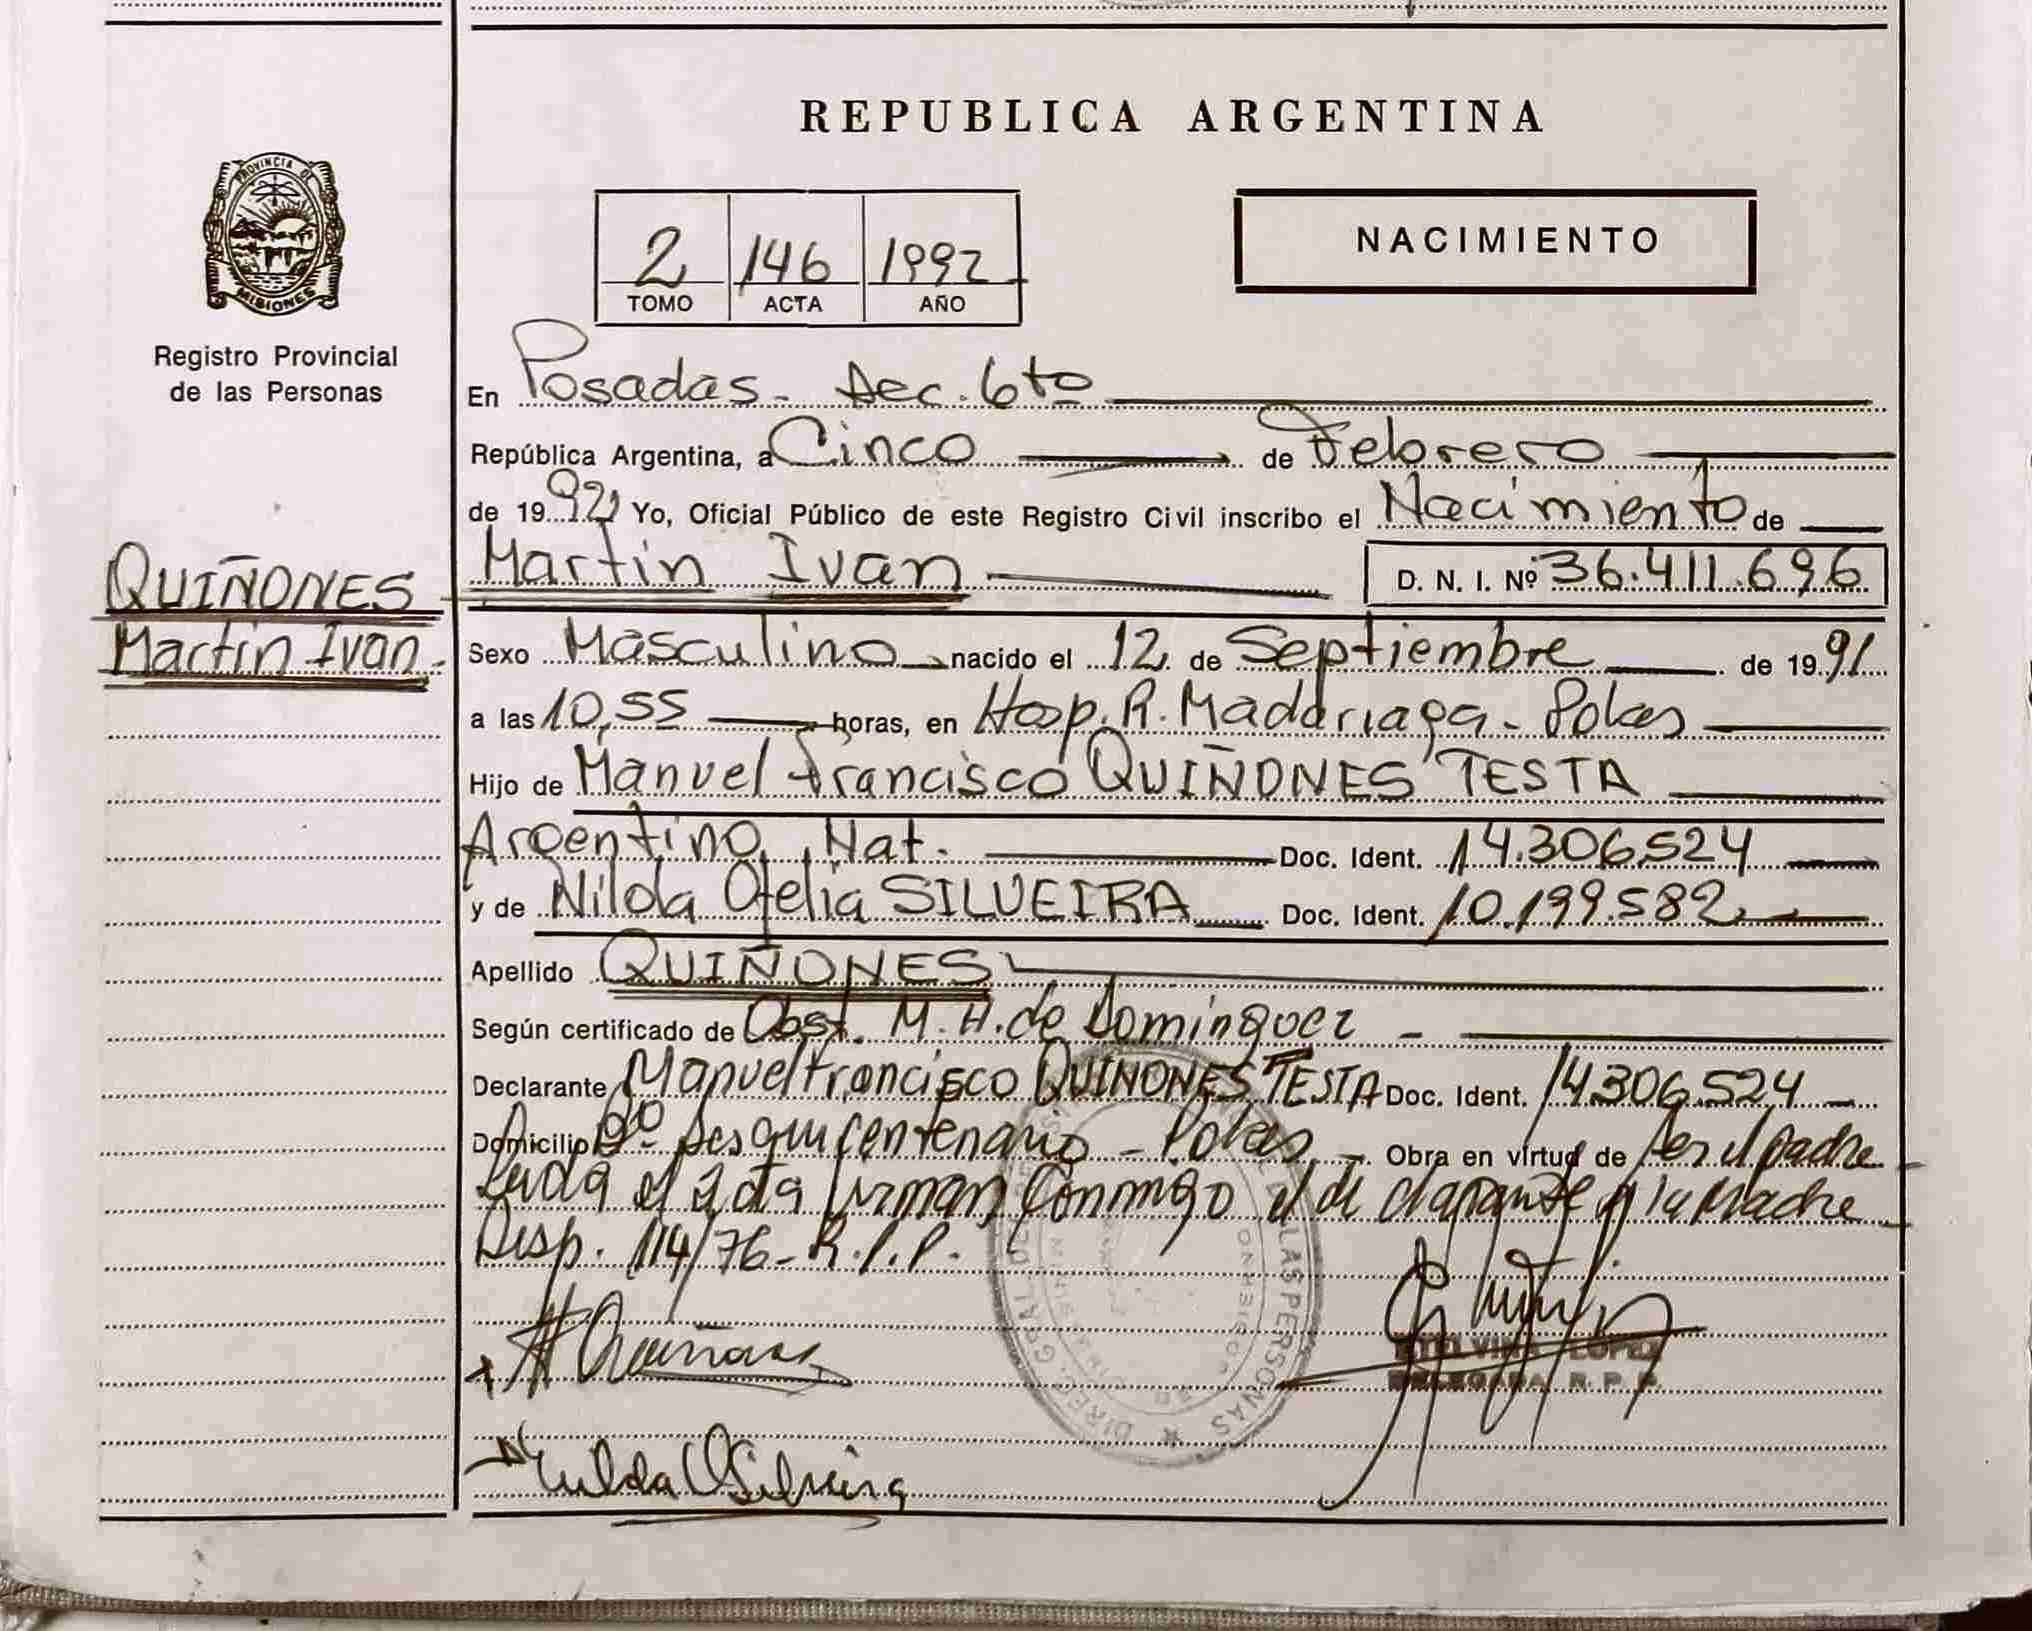 PROVINCIA DE
MISIONES
Registro Provincial
de las Personas
QUIÑONES
Martin Ivan.
REPUBLICA ARGENTINA
2 146 1992
TOMO ACTA AÑO
NACIMIENTO
En Posadas - Sec. 6to
República Argentina, a Cinco de Febrero
de 1992 Yo, Oficial Público de este Registro Civil inscribo el Nacimiento de
Martin Ivan D. N. I. Nº 36.411.696
Sexo Masculino nacido el 12 de Septiembre de 1991
a las 10,55 horas, en Hosp. R. Madariaga - Pdas
Hijo de Manuel Francisco QUIÑONES TESTA
Argentino Nat. Doc. Ident. 14.306.524
y de Nilda Ofelia SILVEIRA Doc. Ident. 10.199.582
Apellido QUIÑONES
Según certificado de Obst. M. H. de Dominguez -
Declarante Manuel Francisco QUIÑONES TESTA Doc. Ident. 14.306.524 -
Domicilio Bº Sesquicentenario - Pdas - Obra en virtud de ser el padre -
Leida el Acta firman conmigo el declarante y la Madre -
Disp. 114/76 - R.P.P.
Quiñones
Nilda O Silveira
ETELVINA LOPEZ
DELEGADA R. P. P.
DIREC. GRAL. DE LAS PERSONAS